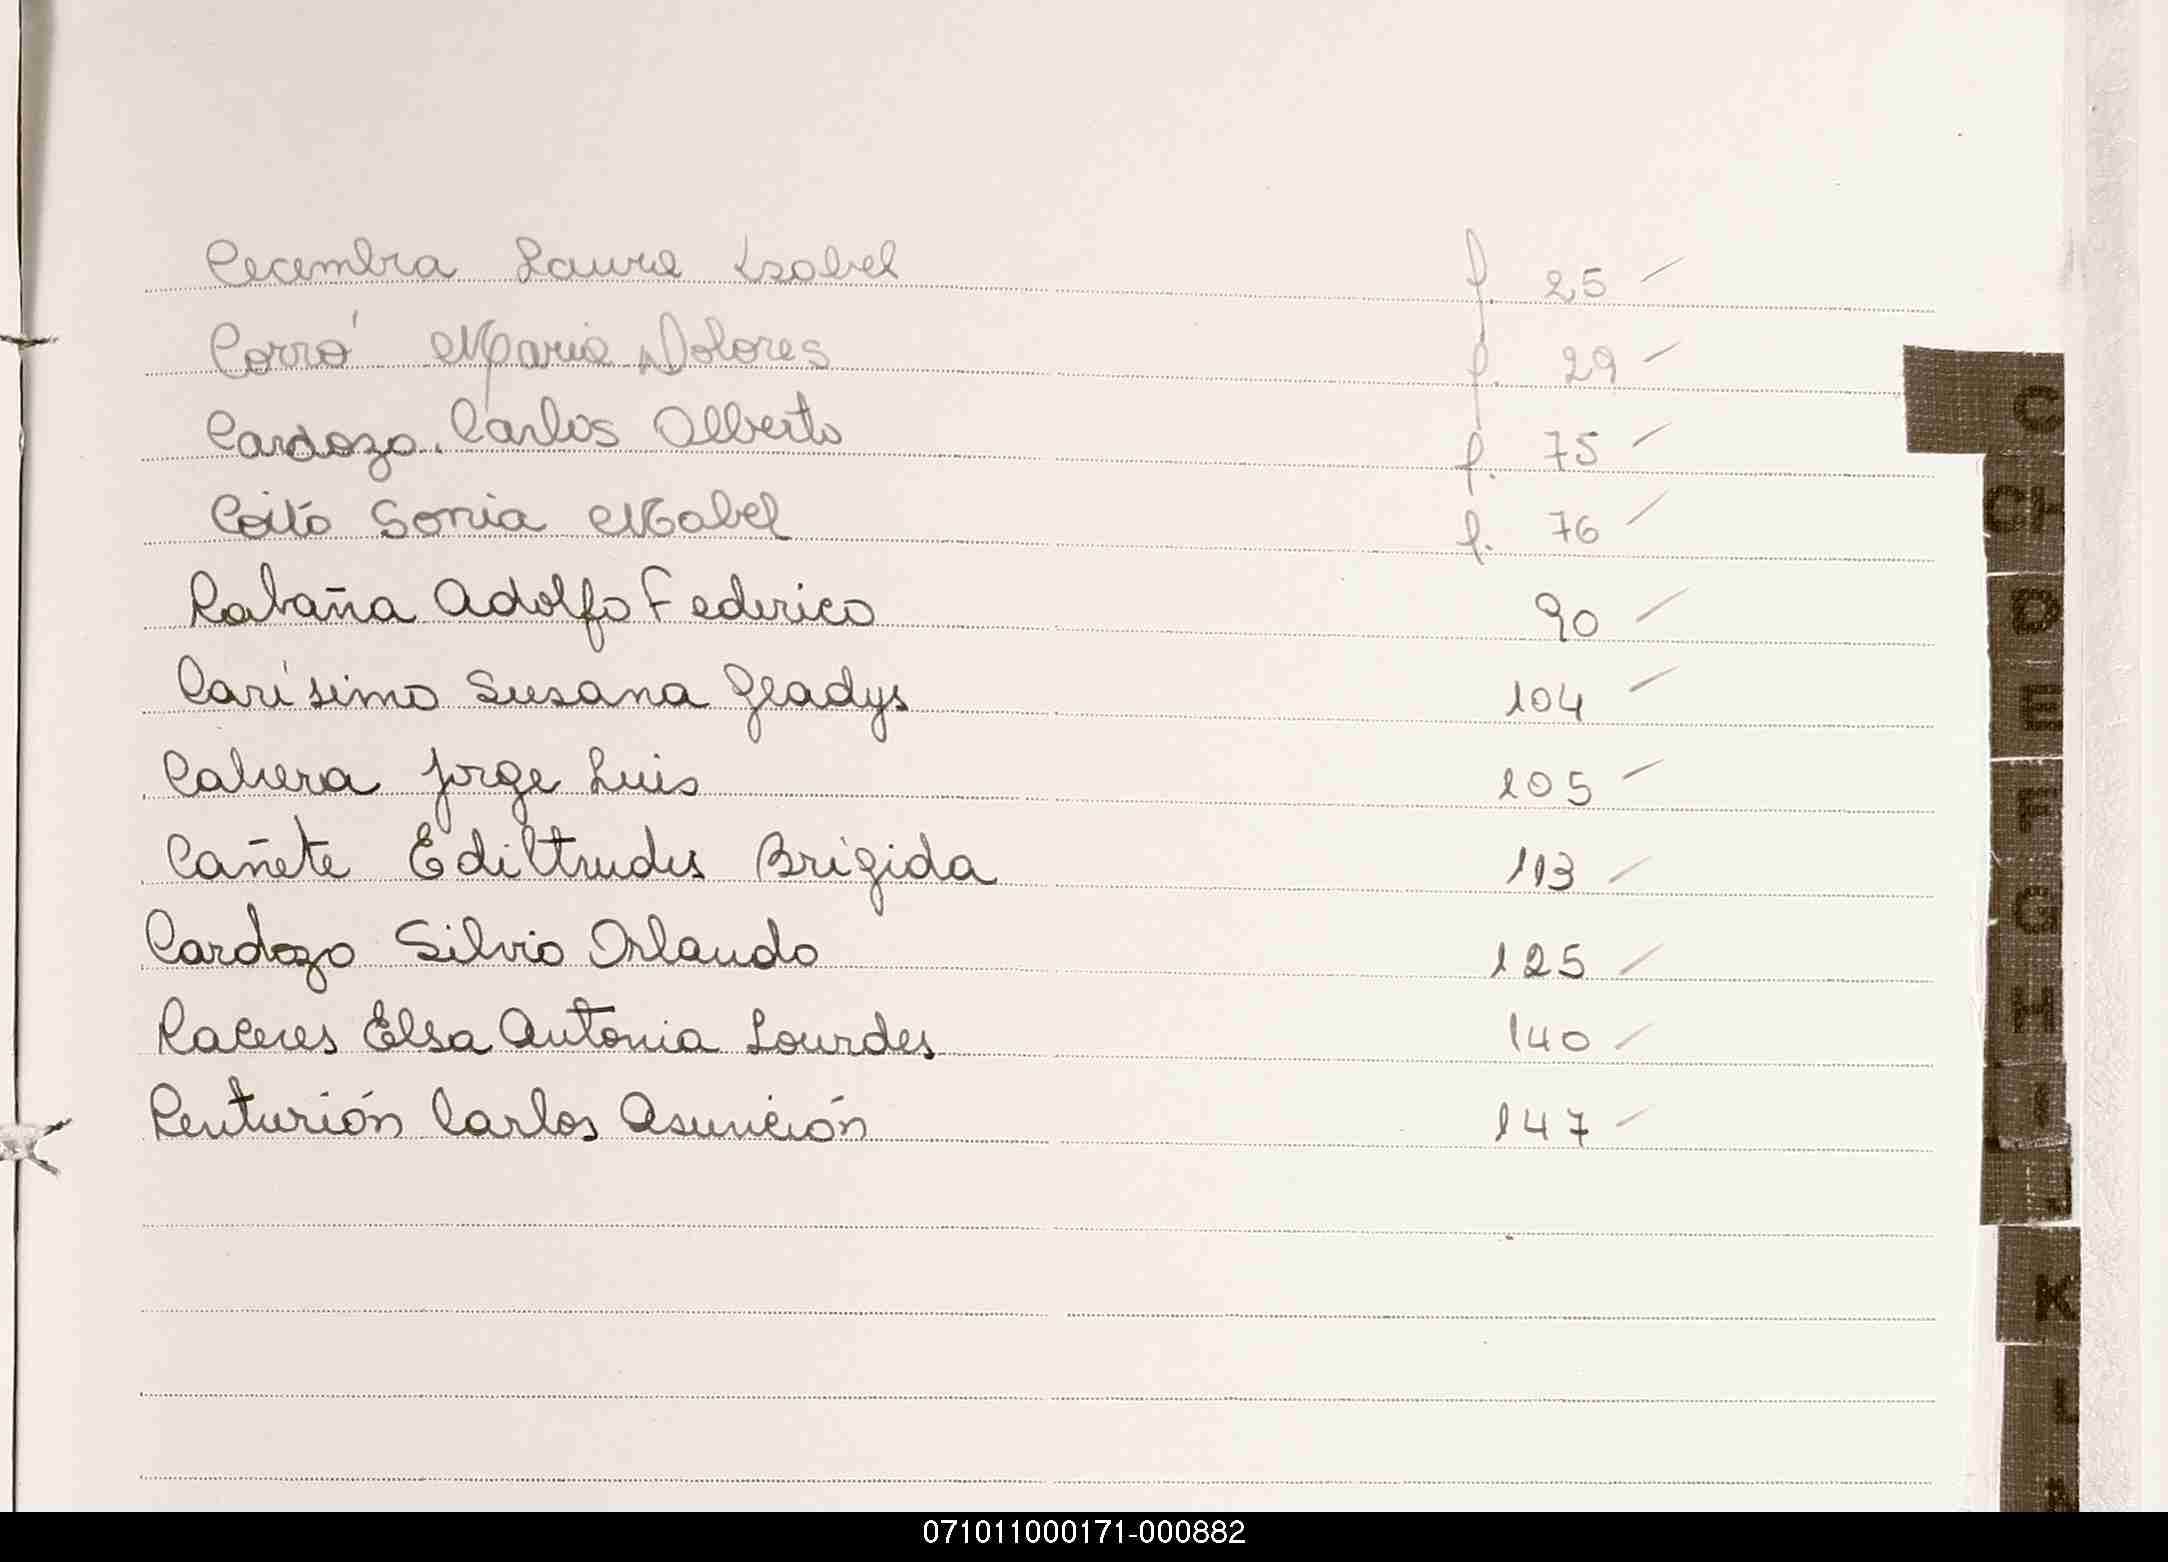 Cecembra Laura Isabel f. 25
Corró Maria Dolores f. 29
Cardozo. Carlos Alberto f. 75
Coito Sonia Mabel f. 76
Cabaña Adolfo Federico 90
Carísimo Susana Gladys 104
Cabrera Jorge Luis 105
Cañete Ediltrudis Brigida 113
Cardozo Silvio Orlando 125
Caceres Elsa Antonia Lourdes 140
Centurión Carlos Asunción 147
C
CH
D
E
F
G
H
I
J
K
L
071011000171-000882